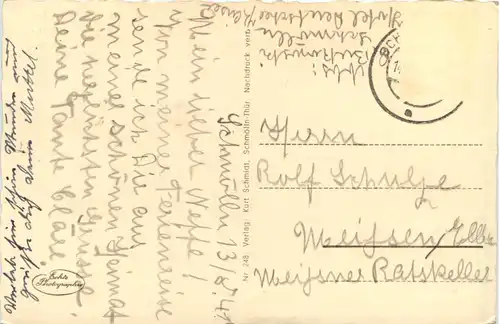 Schmölln 13/8.41
Mein lieber Neffe!
Von meiner Ferienreise
sende ich Dir aus
meiner schönen Heimat
die herzlichsten Grüsse.
Deine Tante Cläre.
grüßt dich deine Mutti.
Abs:
Schmölln
Hotel Deutscher Kaiser
Herrn
Rolf Schulze
Meißen/Elbe
Meißner Ratskeller
Nr 248 Verlag: Kurt Schmidt, Schmölln-Thür Nachdruck verb
Echte
Photographie